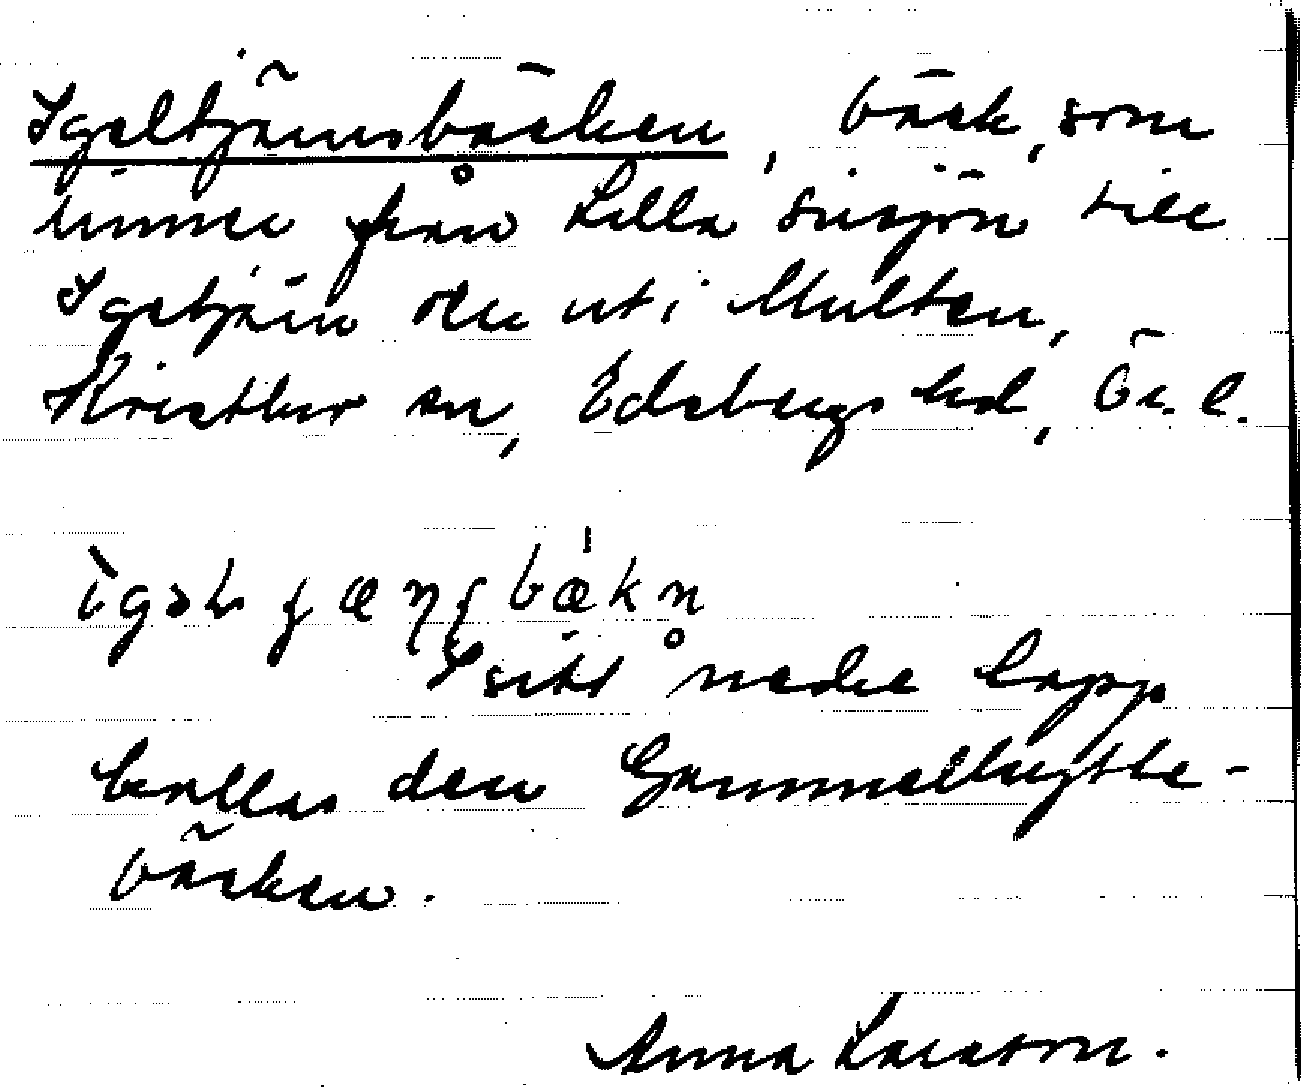 Igeltjärnsbäcken, bäck, som
rinner från Lilla Snisjön till
Igeltjärn och ut i Multen,
Knista sn, Edsbergs hd, Ör. l.
I sitt nedre lopp
kallas den Gammelhytte-
bäcken.
Anna Larsson.